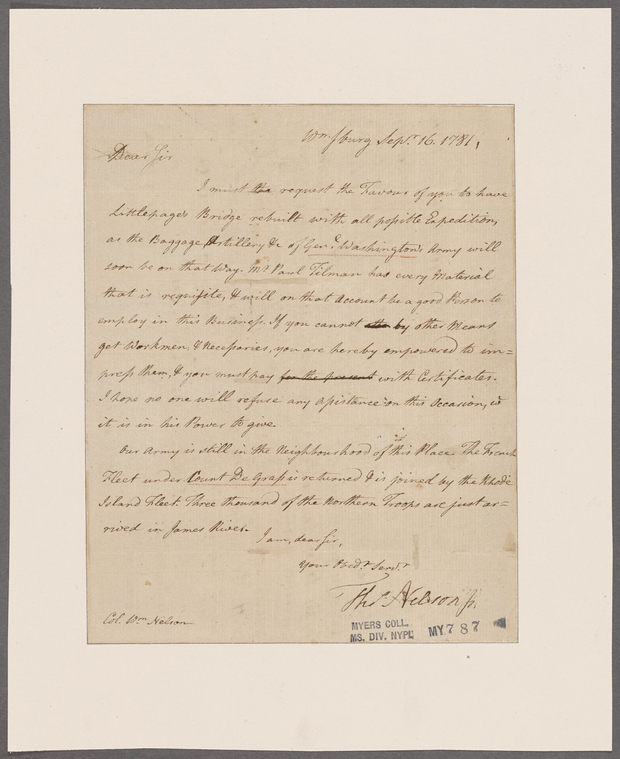 Wmsburg Sepr. 16. 1781,
Dear Sir
I must the request the Favour of you to have
Littlepage's Bridge rebuilt with all possible Expedition,
as the Baggage, Artillery &c of Genl. Washington's Army will
soon be on that Way. Mr. Paul Tilman has every Material
that is requisite, & will on that Account be a good Person to
employ in this Business. If you cannot by other Means
get Workmen & Necessaries, you are hereby empowered to im=
press them, & you must pay for the present with Certificates.
I hope no one will refuse any Assistance on this Occasion, if
it is in his Power to give.
Our Army is still in the Neighbourhood of this Place. The French
Fleet under Count De Grasse is returned & is joined by the Rhode
Island Fleet. Three thousand of the Northern Troops are just ar=
rived in James River.
I am, dear Sir,
Your Obedt. Servt.
Thos. Nelson Jr.
Col. Wm. Nelson
MYERS COLL.
MS. DIV. NYPL
MY 787